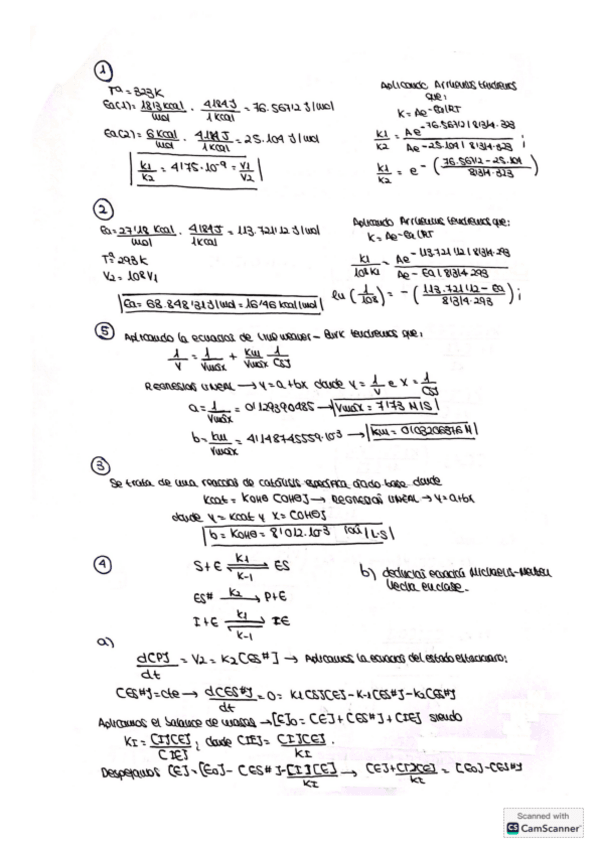 ①
Tª = 323K
Ea(1) = 18'3 kcal/mol · 4'184 J/1 kcal = 76.567'2 J/mol
Ea(2) = 6 kcal/mol · 4'184 J/1 kcal = 25.104 J/mol
k1/k2 = 4'75·10-9 = V1/V2
Aplicando Arrhenius tendremos
que:
K = Ae-Ea/RT
k1/k2 = Ae-76.567'2/8'314·323 / Ae-25.104/8'314·323 ;
k1/k2 = e-(76.567'2-25.104/8'314·323)
②
Ea = 27'18 kcal/mol · 4'184 J/1 kcal = 113.721'12 J/mol
Tª = 293K
V2 = 108V1
Ea = 68.848'313 J/mol = 16'46 kcal/mol
Aplicando Arrhenius tendremos que:
K = Ae-Ea/RT
k1/108k1 = Ae-113.721'12/8'314·293 / Ae-Ea/8'314·293
ln (1/108) = -(113.721'12-Ea/8'314·293) ;
⑤ Aplicando la ecuación de Lineweaver-Burk tendremos que:
1/V = 1/Vmáx + Km/Vmáx 1/[S]
Regresión lineal → y = a+bx donde y = 1/V e x = 1/[S]
a = 1/Vmáx = 0'129390485 → Vmáx = 7'73 M/S
b = km/Vmáx = 4'148745559·10-3 → km = 0'03206376 M
③
Se trata de una reacción de catálisis específica ácido base donde
kcat = KOH⊖ [OH⊖] → REGRESIÓN LINEAL → y = a+bx
donde y = kcat y x = [OH⊖]
b = KOH⊖ = 8'012·103 L/S
④
S+E k1 k-1 ES
ES# k2 → P+E
I+E k1 k-1 IE
b) deducción ecuación Michaelis-Menten
hecha en clase.
a)
d[P]/dt = V2 = K2[ES#] → Aplicamos la ecuación del estado estacionario:
[ES#] = cte → d[ES#]/dt = 0 = K1[S][E]-K-1[ES#]-K2[ES#]
Aplicamos el balance de masas → [E]0 = [E]+[ES#]+[IE] siendo
KI = [I][E]/[IE] ; donde [IE] = [I][E]/KI .
Despejamos [E] = [E0]-[ES#]-[I][E]/KI → [E]+[I][E]/KI = [E0]-[ES#]
Scanned with
CS CamScanner